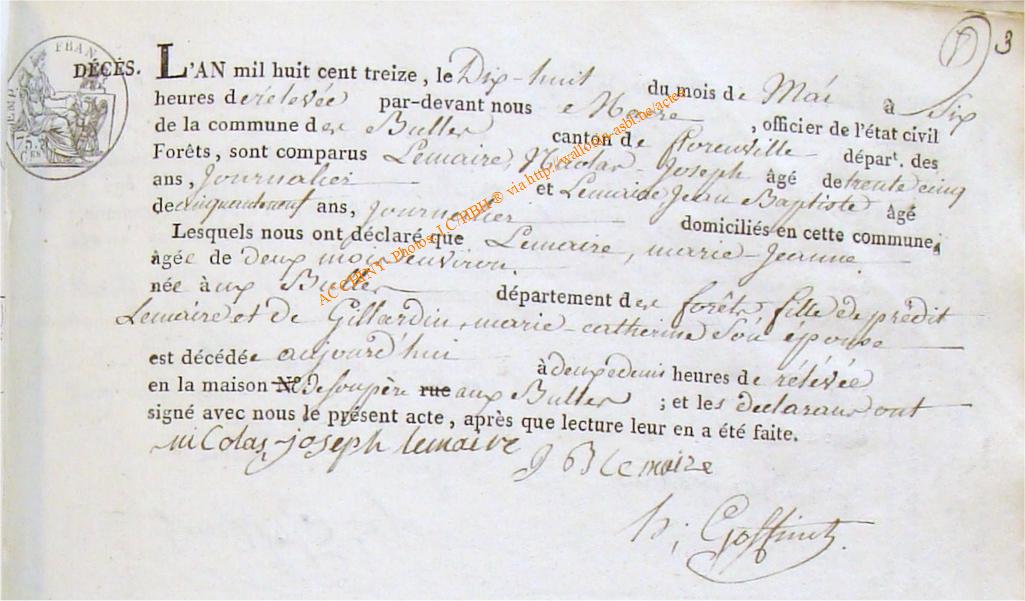 3
FRAN
TIMB
75 C
CEN
DÉCÈS. L'AN mil huit cent treize, le Dix-huit du mois de Mai à Six
heures de relevée par-devant nous Maire, officier de l'état civil
de la commune des Bulles canton de florenville départ. des
Forêts, sont comparus Lemaire, Nicolas-Joseph âgé de trente cinq
ans, Journalier et Lemaire Jean Baptiste âgé
de cinquanteneuf ans, Journalier domiciliés en cette commune,
Lesquels nous ont déclaré que Lemaire, marie-Jeanne
âgée de deux mois environ.
née aux Bulles département des forêts fille de prédit
Lemaire et de Gillardin, marie-catherine Son épouse
est décédée aujourd'hui à deux et demi heures de rélévée
en la maison N.º de son père rue aux Bulles ; et les déclarans ont
signé avec nous le présent acte, après que lecture leur en a été faite.
nicolas-joseph lemaire
J B Lemaire
h, Goffinet
ACCHRNY Photos via http://wallonia-asbl.be/actes